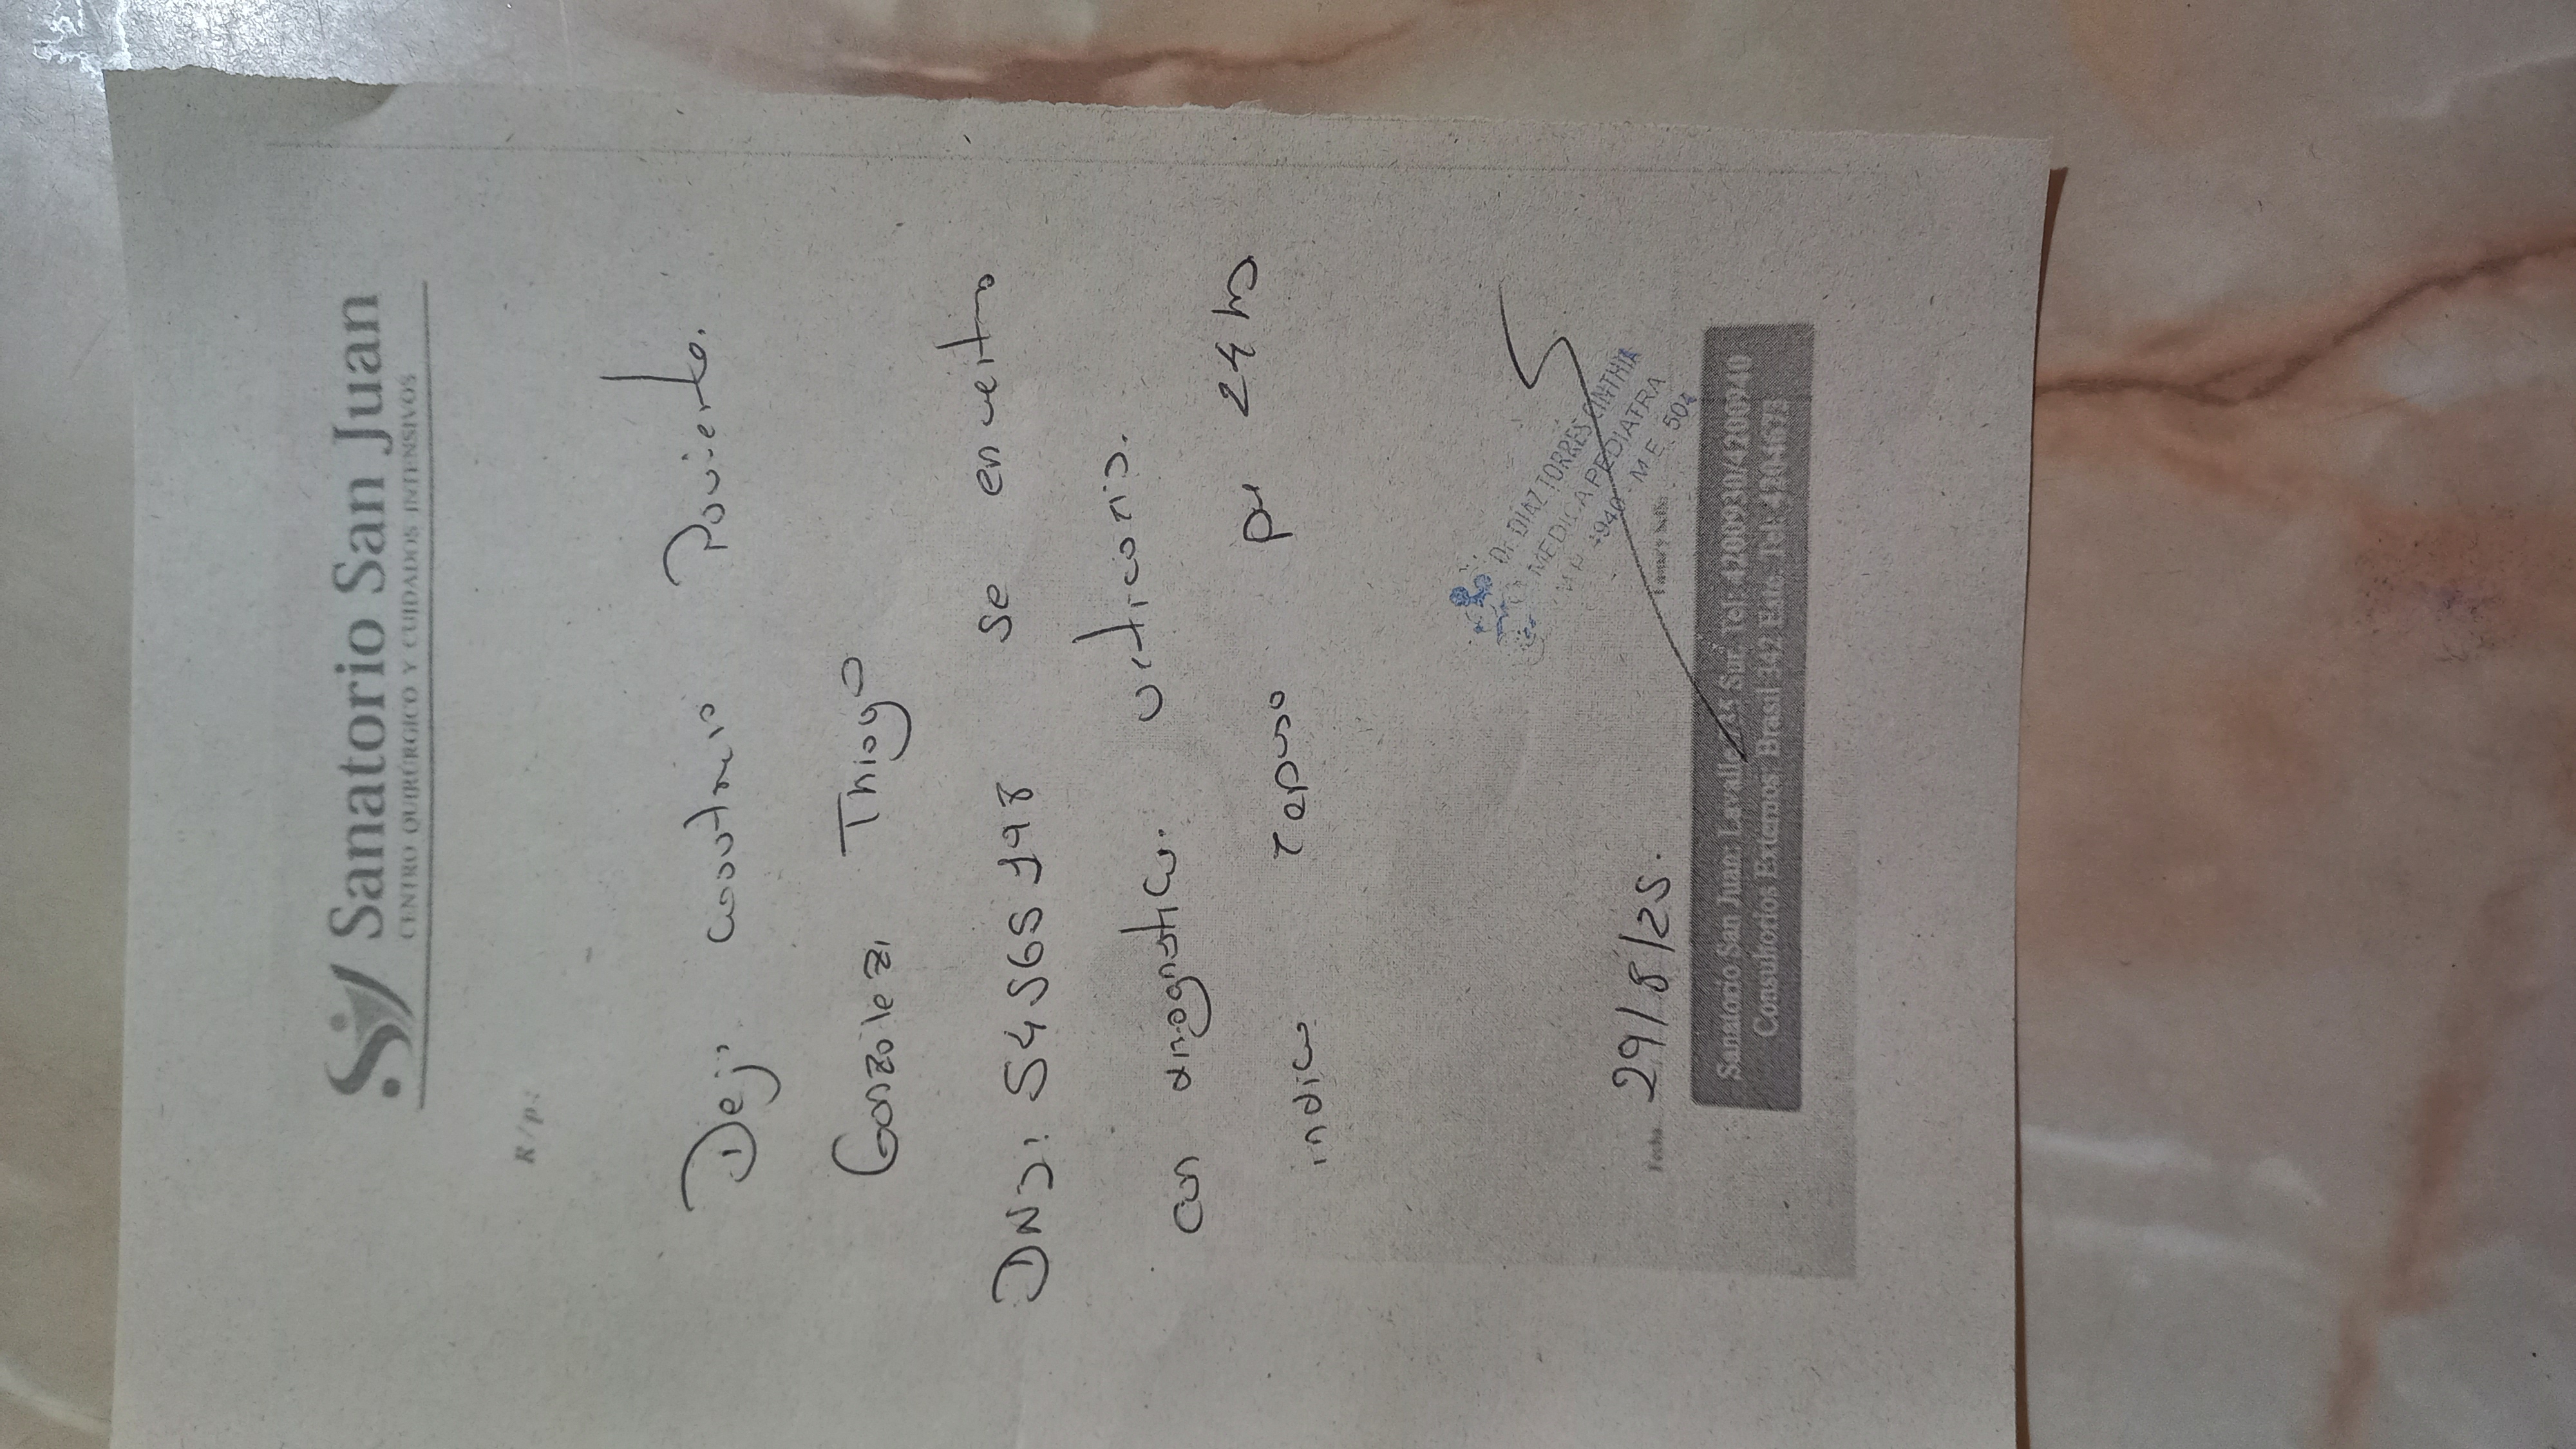 Sanatorio San Juan
CENTRO QUIRÚRGICO Y CUIDADOS INTENSIVOS
R/p:
Dejo constancia Paciente.
Gonzalez Thiago
DNI: 54565198 se encuentra
con diagnostico. urticaria.
indico reposo por 24 hs
Dr DIAZ TORRES CINTHIA
MEDICA PEDIATRA
M.E. 504
Fecha 29/8/25.
Firma y Sello
Sanatorio San Juan: Lavalle Sur. Tel: 4200930/4200940
Consultorios Externos: Brasil 342 Este. Tel: